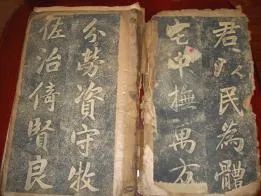 君以民為體
宅中撫萬方
分勞資守牧
佐治倚賢良